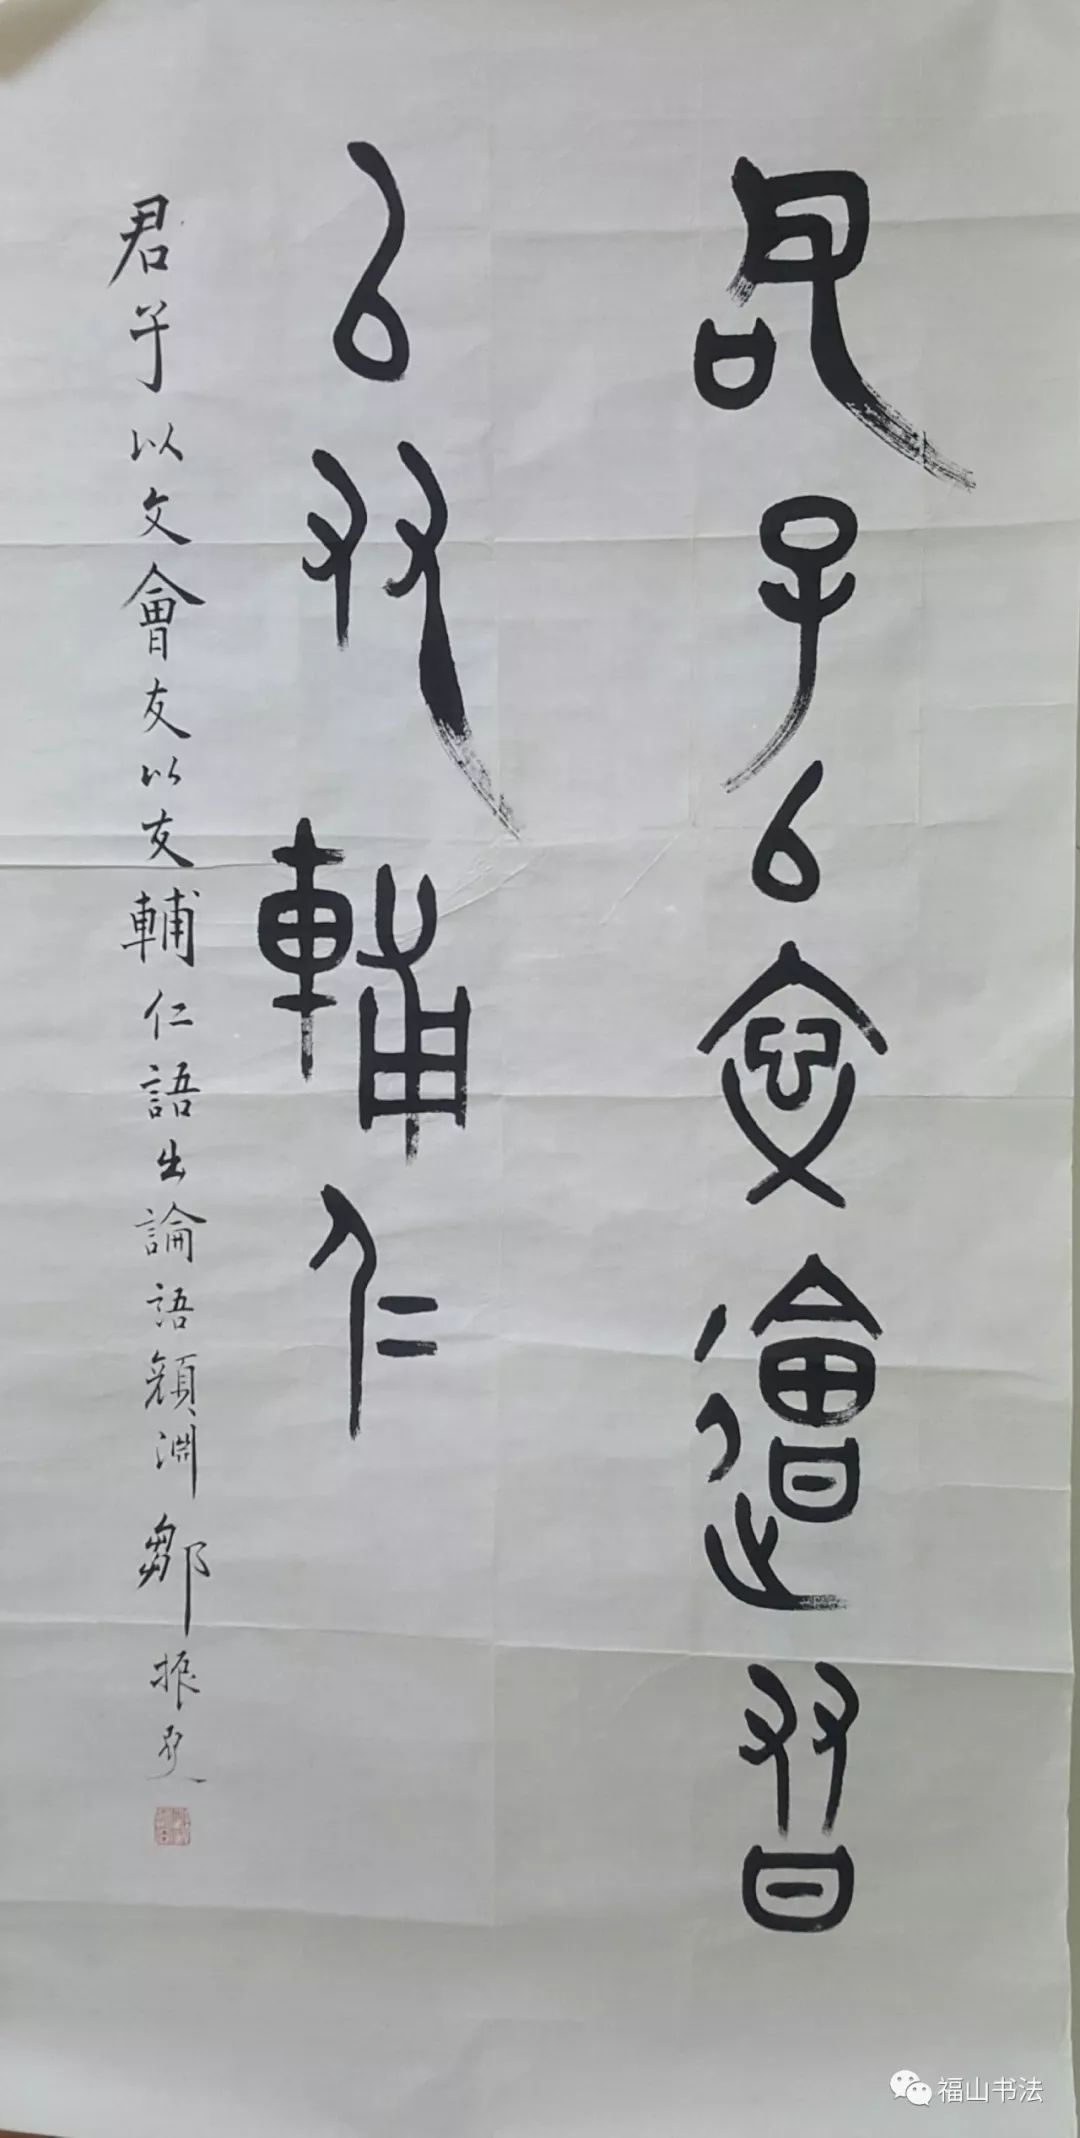 君子以文會友
以友輔仁
君子以文會友以友輔仁語出論語顏淵鄒振
福山书法